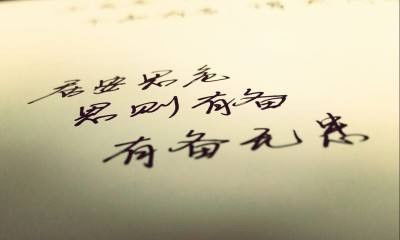 居安思危
思则有备
有备无患